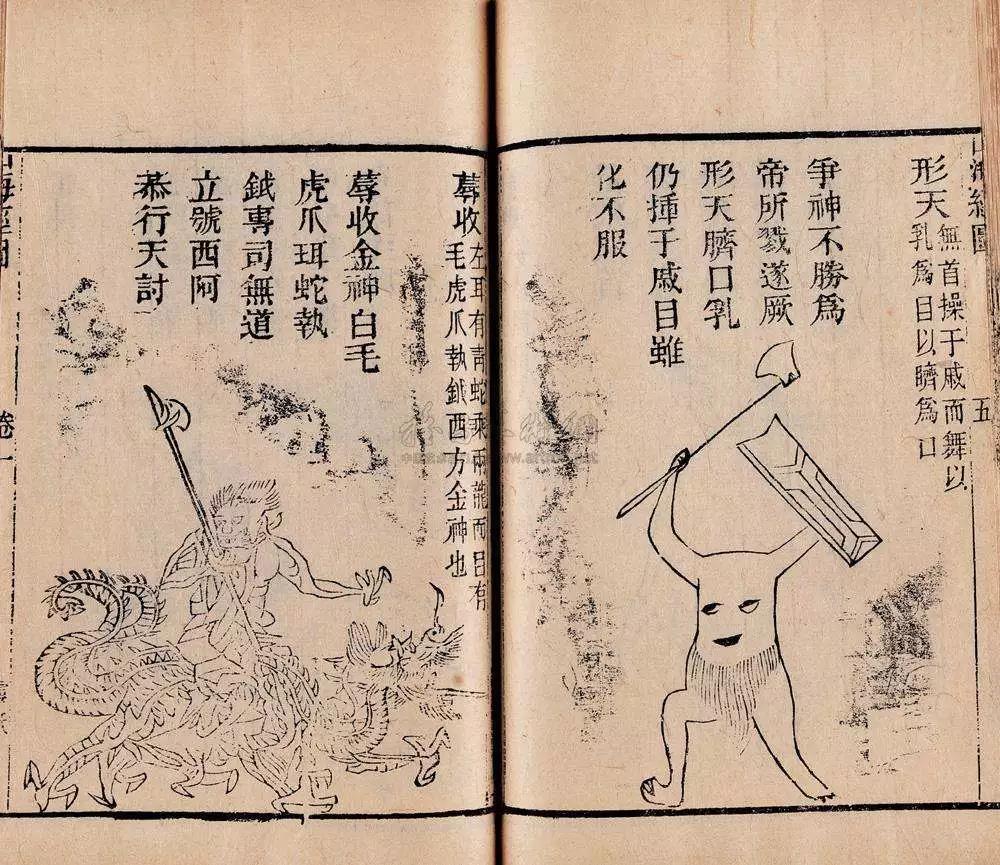 形天
無首操干戚而舞以
乳爲目以臍爲口
爭神不勝爲
帝所戮遂厥
形天臍口乳
仍揮干戚目雖
化不服
五
蓐收
左耳有青蛇乘兩龍面目有
毛虎爪執鉞西方金神也
蓐收金神白毛
虎爪珥蛇執
鉞專司無道
立號西阿
恭行天討
山海經圖
卷一